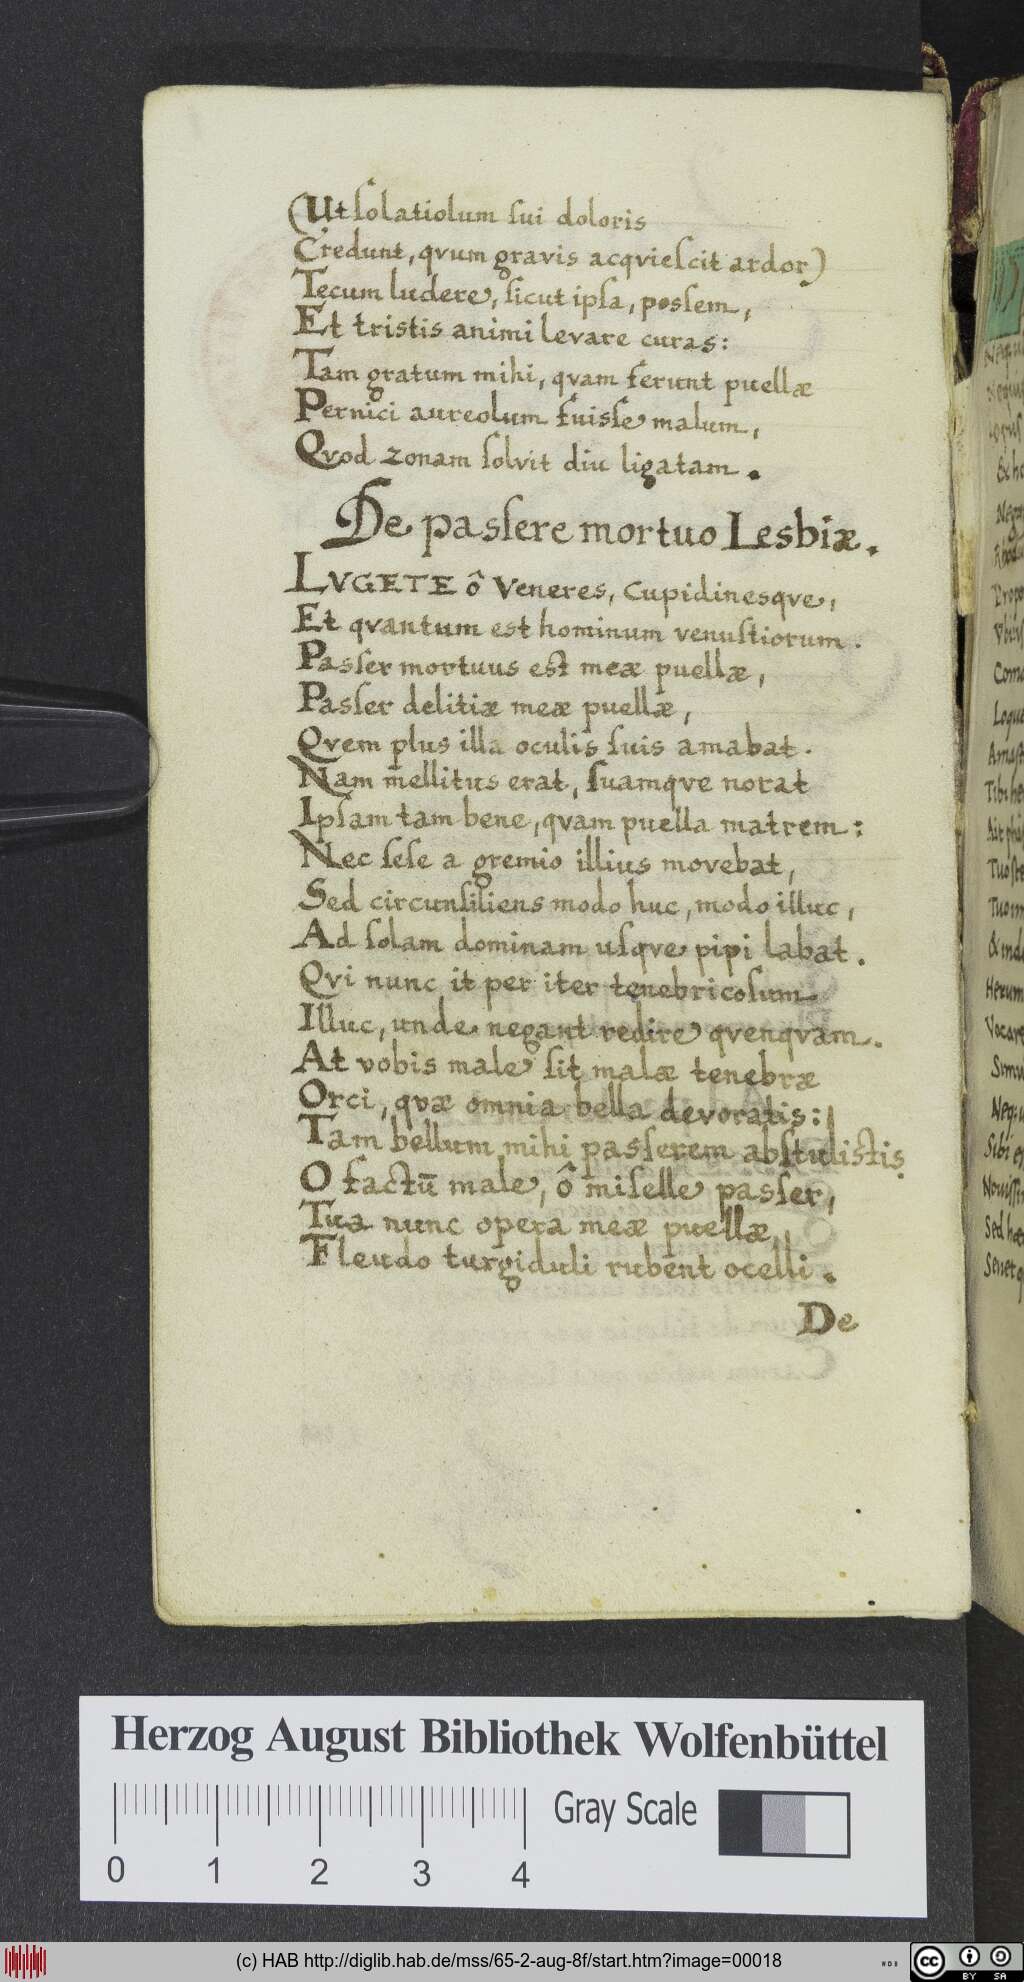 (Ut ſolatiolum ſui doloris
Credunt, qvum gravis acqvieſcit ardor)
Tecum ludere, ſicut ipſa, poſſem,
Et tristis animi levare curas:
Tam gratum mihi, qvam ferunt puellæ
Pernici aureolum fuiſſe malum,
Qvod zonam ſolvit diu ligatam.
De paſſere mortuo Lesbiæ.
LVGETE ô Veneres, Cupidinesqve,
Et qvantum est hominum venuſtiorum.
Paſſer mortuus est meæ puellæ,
Paſſer delitiæ meæ puellæ,
Qvem plus illa oculis ſuis amabat.
Nam mellitus erat, ſuamqve norat
Ipſam tam bene, qvam puella matrem:
Nec ſeſe a gremio illius movebat,
Sed circunſiliens modo huc, modo illuc,
Ad ſolam dominam uſqve pipi labat.
Qvi nunc it per iter tenebricoſum
Illuc, unde negant redire qvenqvam.
At vobis male ſit malæ tenebræ
Orci, qvæ omnia bella devoratis:
Tam bellum mihi paſſerem abſtulistis
O factū male, ô miſelle paſſer,
Tua nunc opera meæ puellæ,
Flendo turgiduli rubent ocelli.
De
Herzog August Bibliothek Wolfenbüttel
0 1 2 3 4
Gray Scale
(c) HAB http://diglib.hab.de/mss/65-2-aug-8f/start.htm?image=00018
cc BY SA